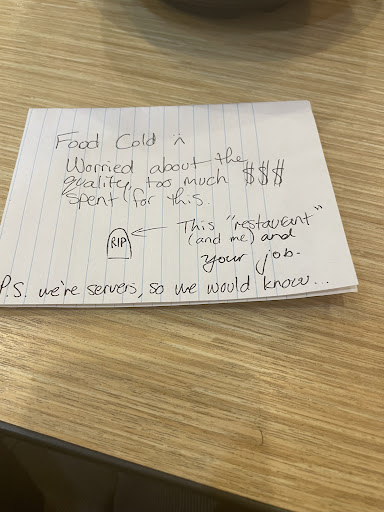 Food Cold
Worried about the
quality, too much $$$
spent for this.
This "restaurant"
(and me) and
your job.
RIP
P.S. we're servers, so we would know...